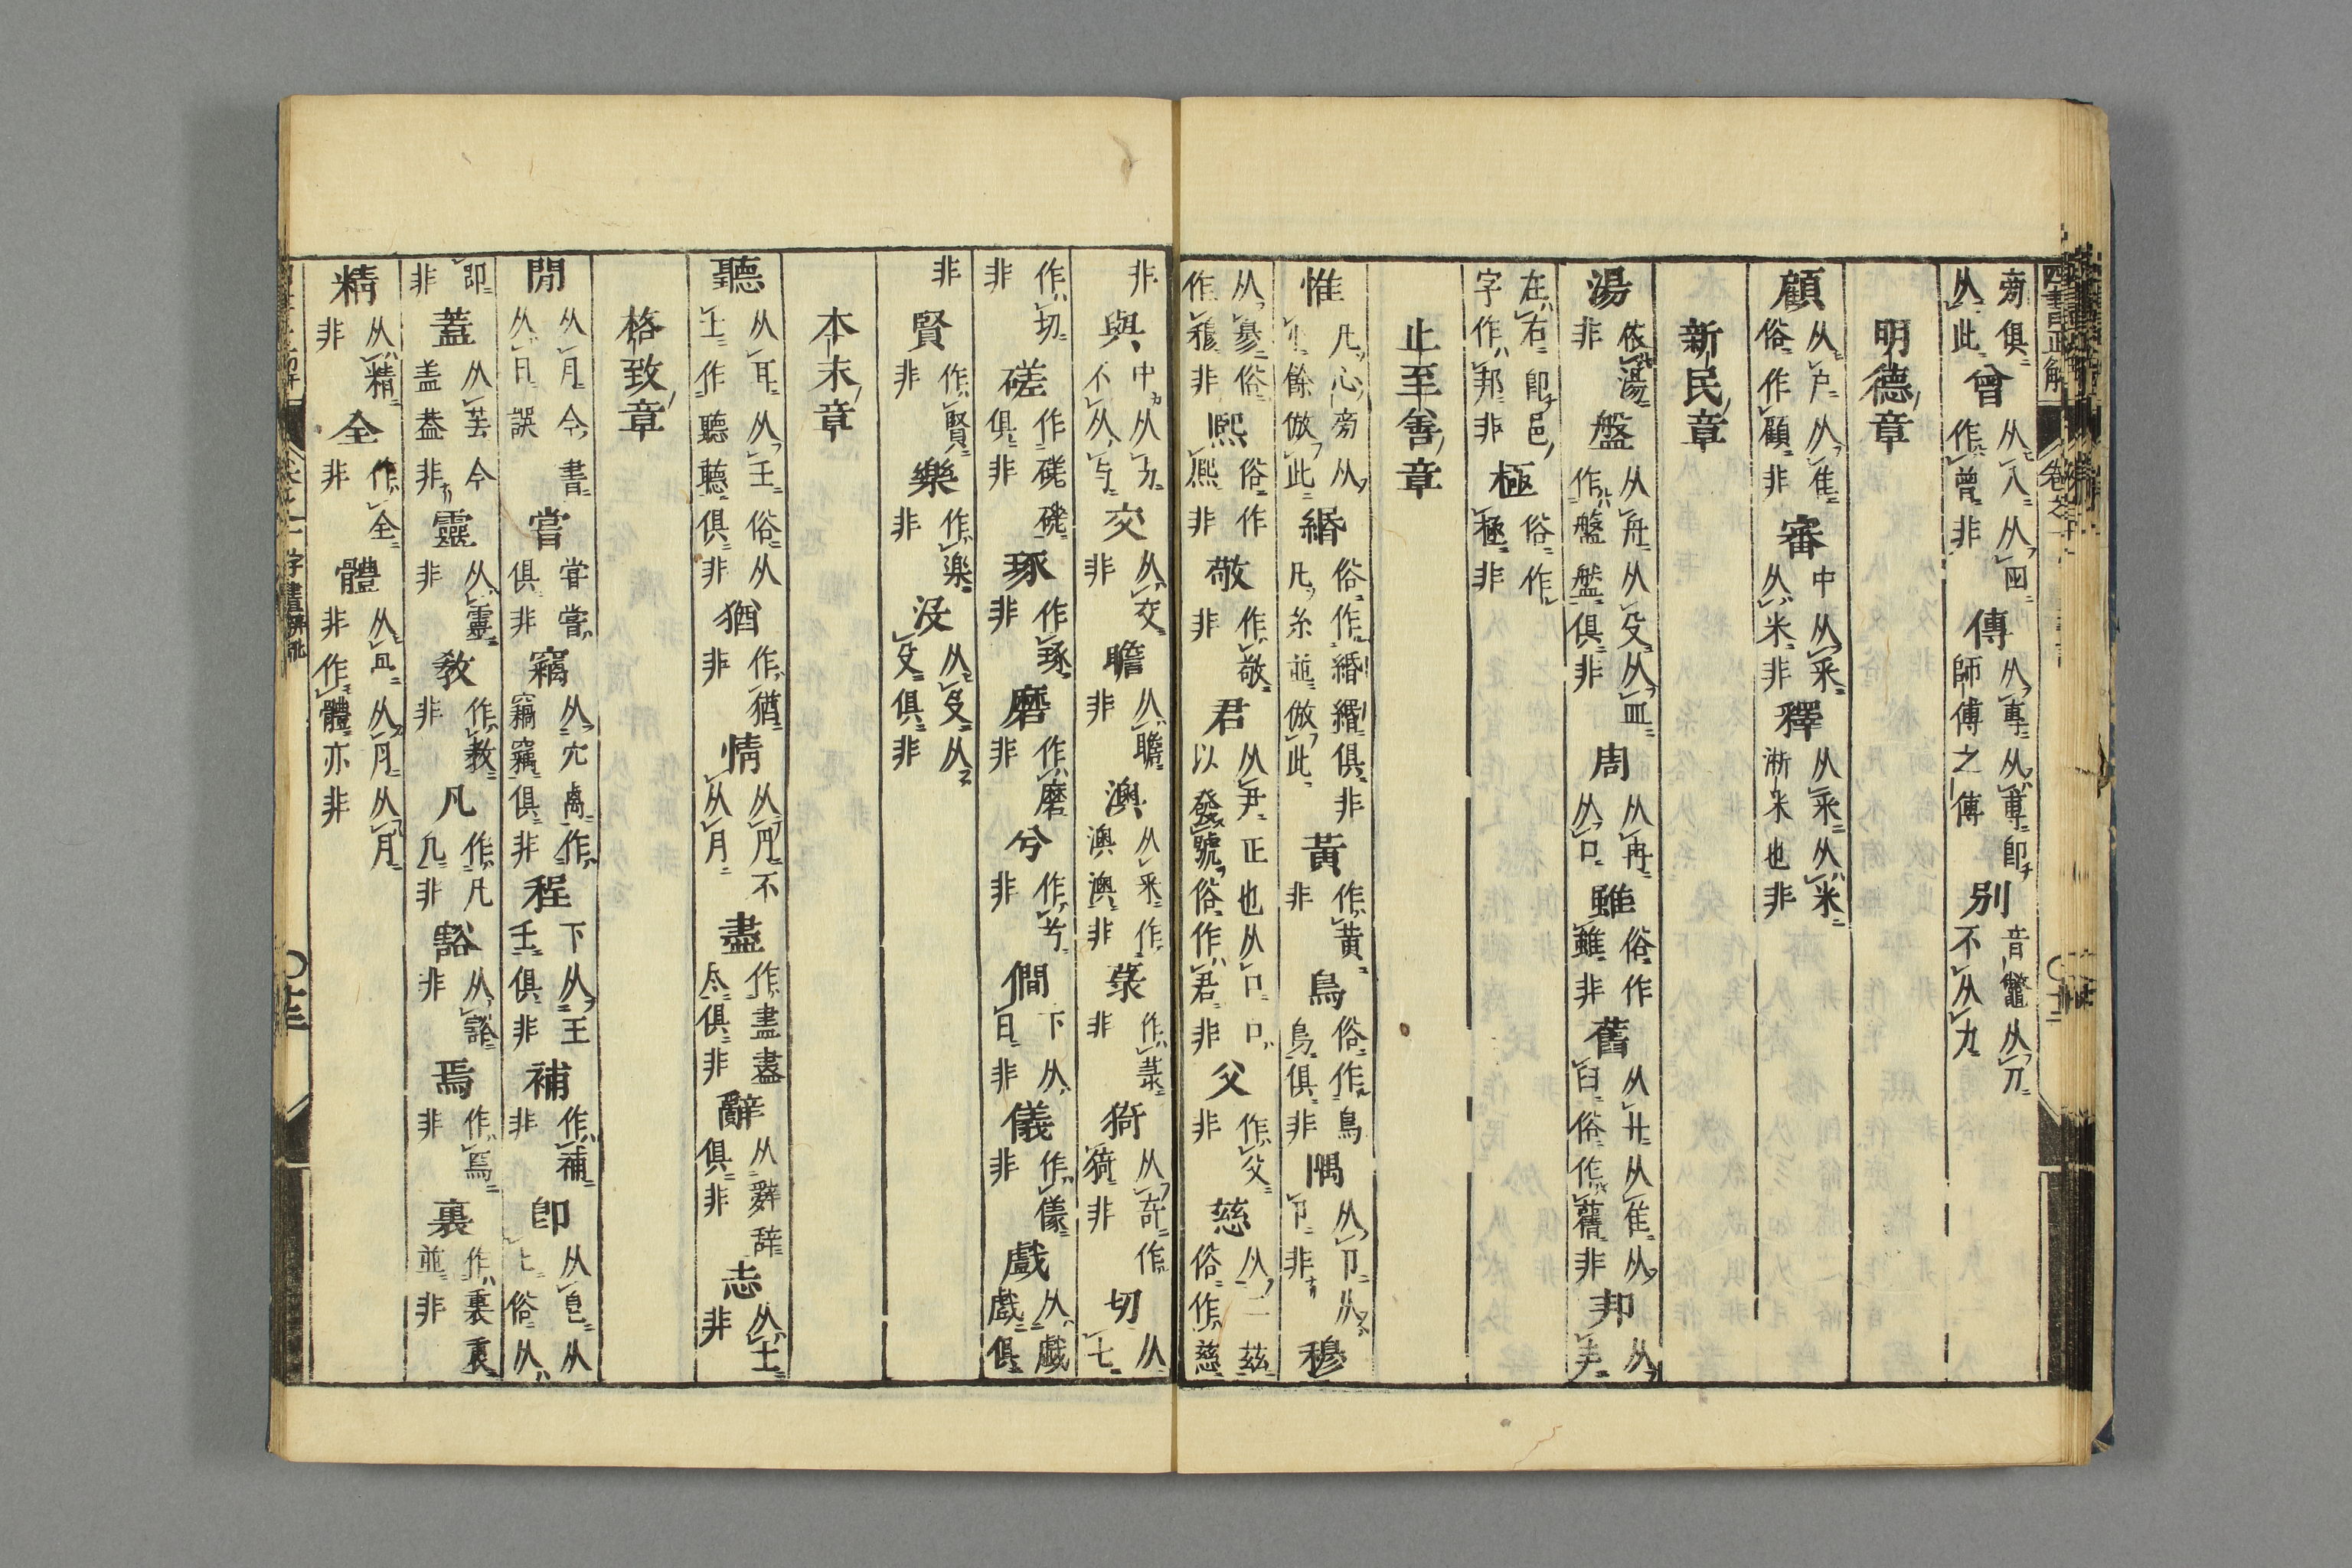 旁俱从此 曾 从八从囧作曾非 傳 从專从尃卽師傅之傅 別 音鼈从刀不从力
明德章
顧 从戶从隹俗作顧非 審 中从釆从米非 釋 从釆从米淅米也非
新民章
湯 依湯非 盤 从舟从殳从皿作盤盤俱非 周 从冉从口 雖 俗作雖非 舊 从廾从隹从臼俗作舊非 邦 从丰
在右卽邑字作邦非 極 俗作極非
止至善章
惟 凡心旁从忄餘倣此 緡 俗作緡緡俱非凡糸並倣此 黃 作黃非 鳥 俗作鳥鳥俱非 隅 从卩从卩非 穆
从㣎俗作穆非 熙 俗作熙非 敬 作敬非 君 从尹正也从口口以發號俗作君非 父 作父非 慈 从二茲俗作慈
非 與 中从与不从与 交 从交非 瞻 从瞻非 澳 从釆作澳澳非 菉 作菉非 猗 从奇作猗非 切 从七
作切非 磋 作磋磋俱非 琢 作琢非 磨 作磨非 兮 作兮非 僩 下从日非 儀 作儀非 戲 从戲戲俱
非 賢 作賢非 樂 作樂非 沒 从殳从殳俱非
本末章
聽 从耳从王俗从𡈼作聽聽俱非 猶 作猶非 情 从円不从月 盡 作盡盡尽俱非 辭 从辤辞俱非 志 从士非
格致章
閒 从月今从日誤書 嘗 甞嘗俱非 竊 从穴卨作竊竊俱非 程 下从王壬俱非 補 作補非 卽 从皀从匕俗从
卽非 蓋 从芸今盖葢非 靈 从靈非 敎 作教非 凡 作凡几非 豁 从豁非 焉 作焉非 裏 作裏裏並非
精 从精非 全 作全非 體 从骨从月从月作體亦非
四書正解 卷之一
字畫辨訛 〇十三